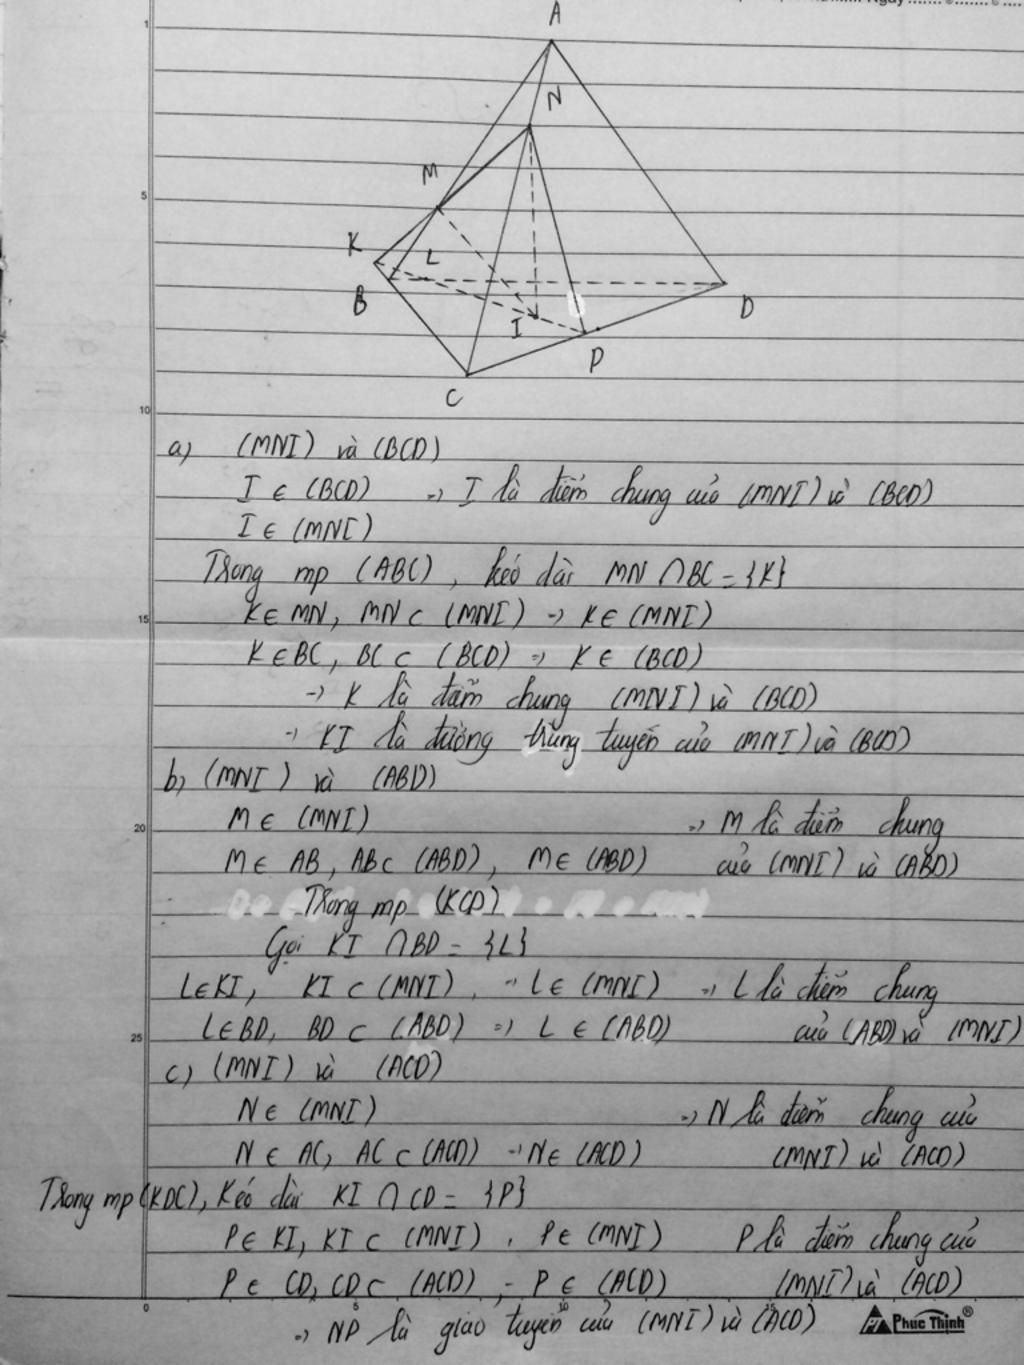 Ngày
A
N
M
K
L
B
I
D
P
C
1
5
10
15
20
25
a) (MNI) và (BCD)
I ∈ (BCD) => I là điểm chung của (MNI) và (BCD)
I ∈ (MNI)
Trong mp (ABC), kéo dài MN ∩ BC = {K}
K ∈ MN, MN ⊂ (MNI) -> K ∈ (MNI)
K ∈ BC, BC ⊂ (BCD) => K ∈ (BCD)
-> K là điểm chung (MNI) và (BCD)
-> KI là đường trùng tuyến của (MNI) và (BCD)
b) (MNI) và (ABD)
M ∈ (MNI) => M là điểm chung
M ∈ AB, AB ⊂ (ABD), M ∈ (ABD) của (MNI) và (ABD)
Trong mp (KCD)
Gọi KI ∩ BD = {L}
L ∈ KI, KI ⊂ (MNI), -> L ∈ (MNI) => L là điểm chung
L ∈ BD, BD ⊂ (ABD) => L ∈ (ABD) của (ABD) và (MNI)
c) (MNI) và (ACD)
N ∈ (MNI) => N là điểm chung của
N ∈ AC, AC ⊂ (ACD) -> N ∈ (ACD) (MNI) và (ACD)
Trong mp (KDC), kéo dài KI ∩ CD = {P}
P ∈ KI, KI ⊂ (MNI), P ∈ (MNI) P là điểm chung của
P ∈ CD, CD ⊂ (ACD) - P ∈ (ACD) (MNI) và (ACD)
0 5 10 15
=> NP là giao tuyến của (MNI) và (ACD)
Phuc Thinh®